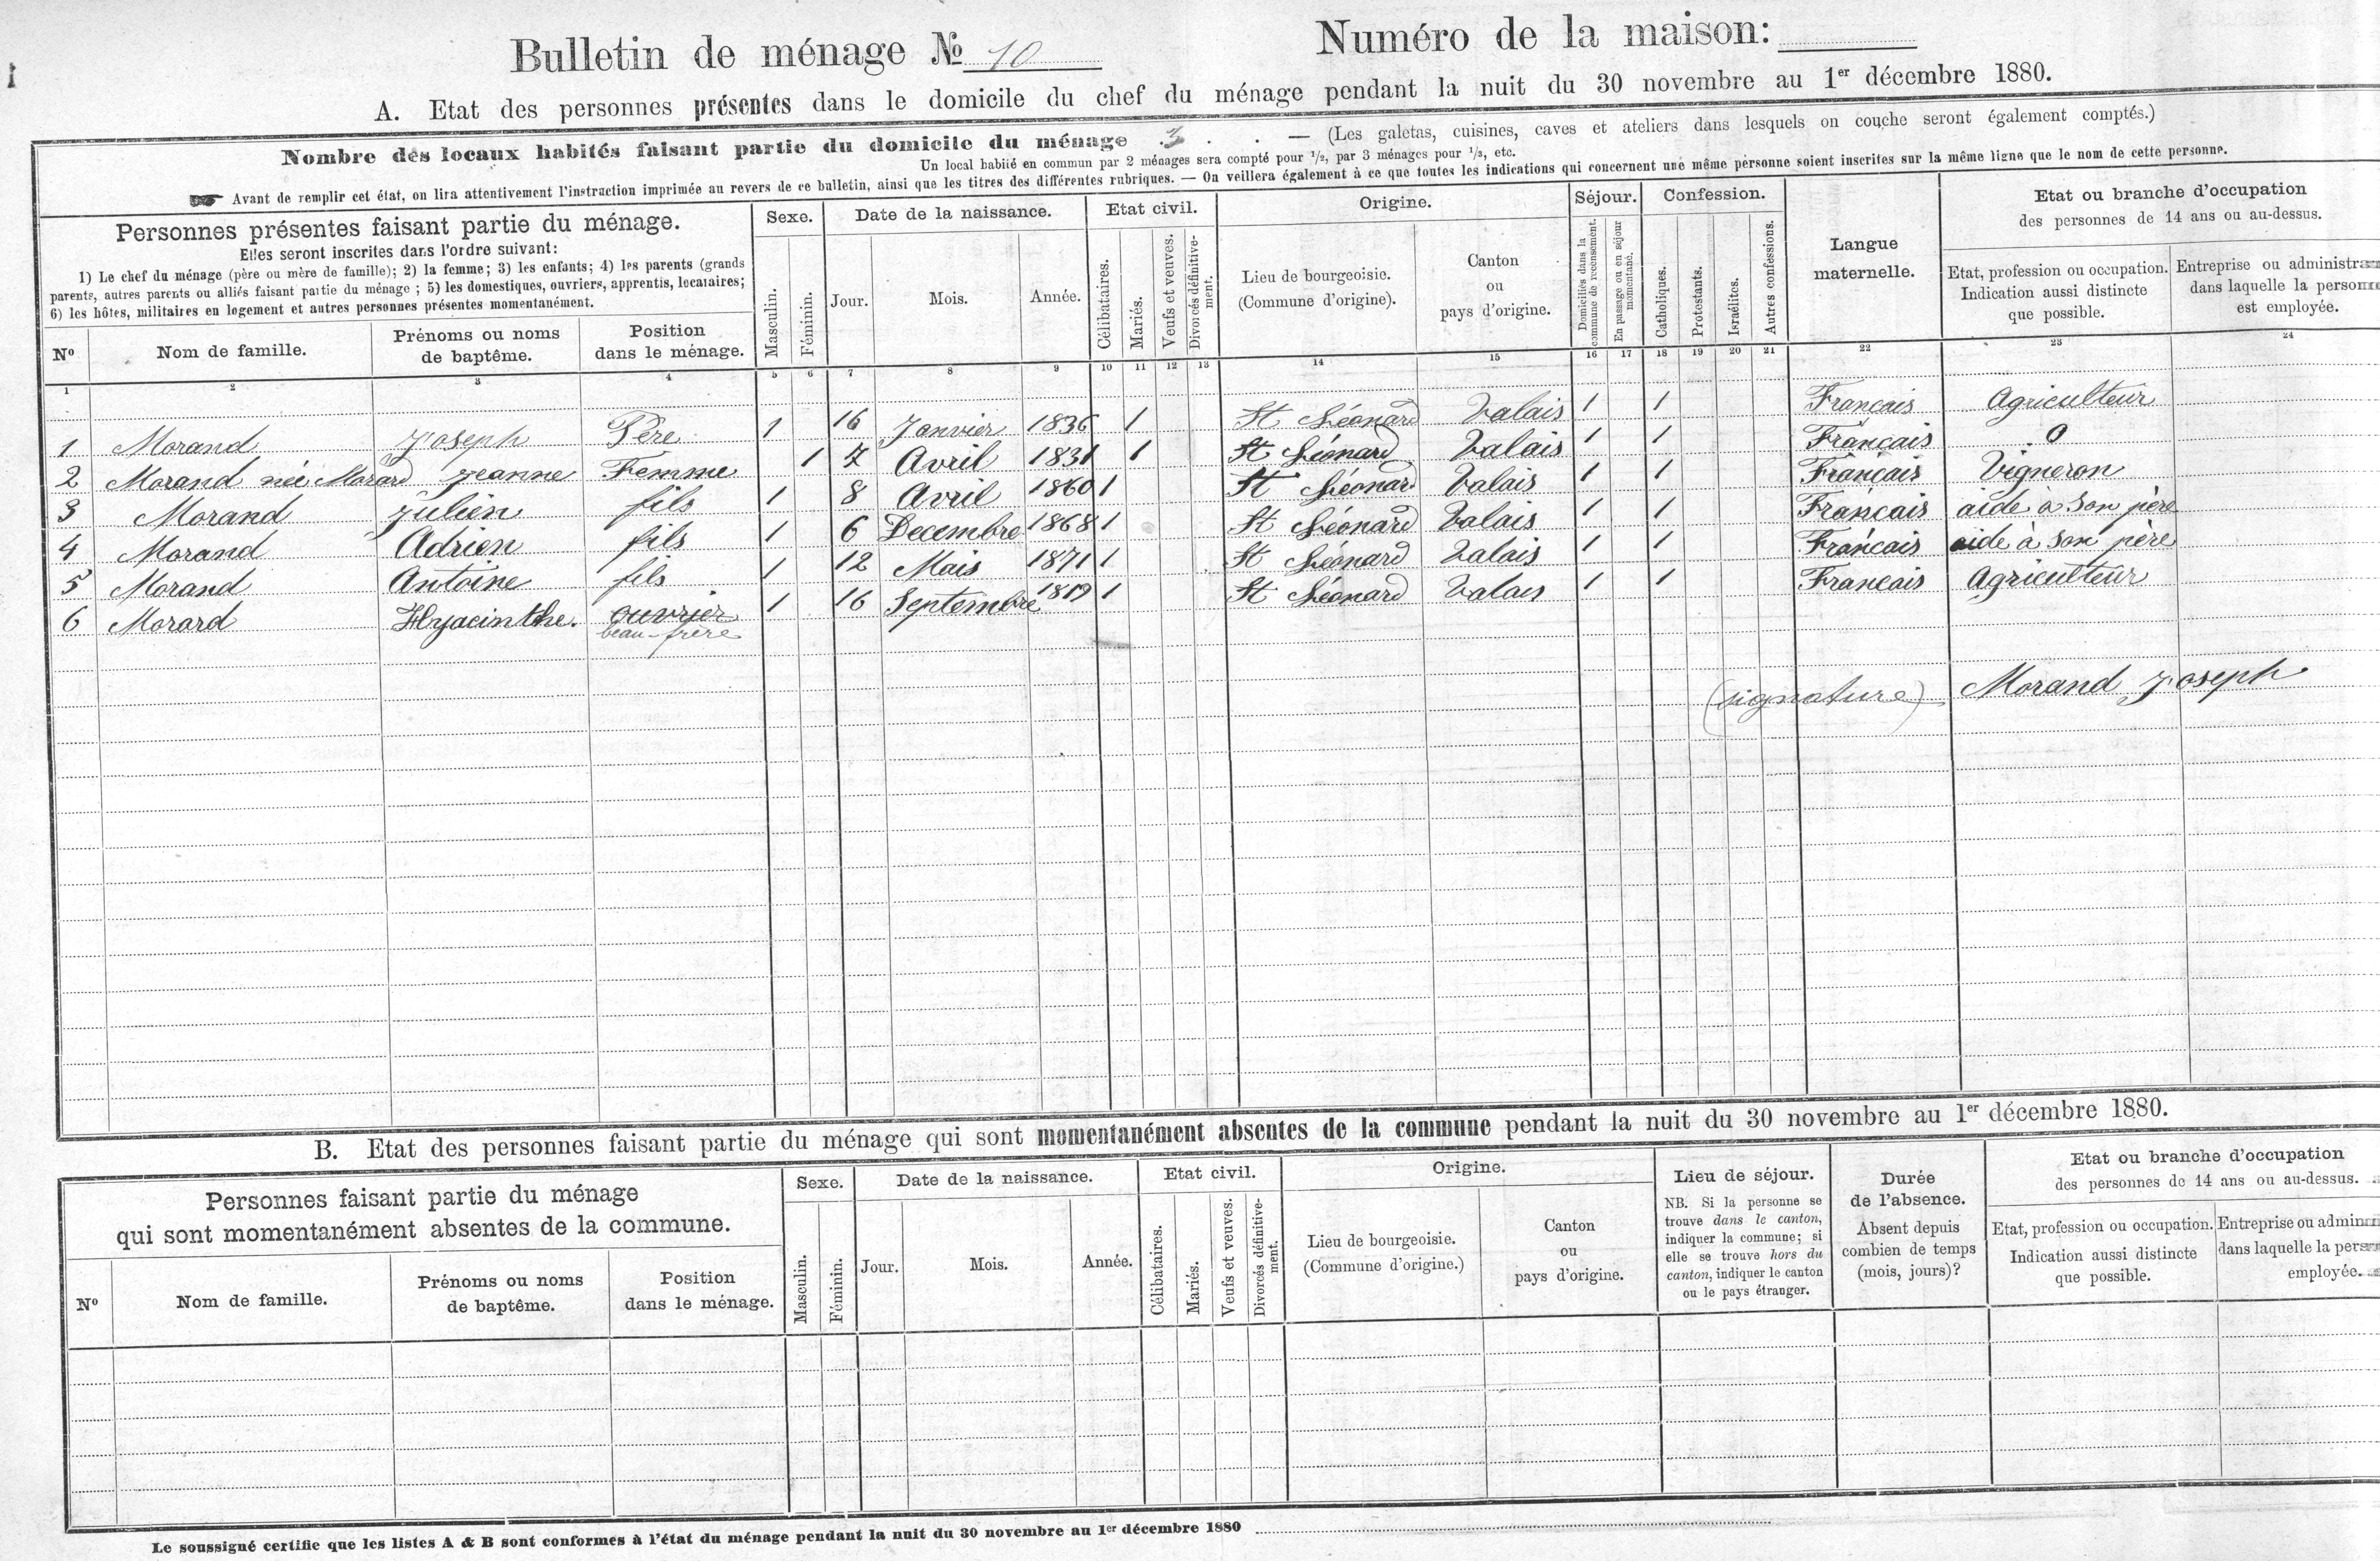 Bulletin de ménage № 10 Numéro de la maison:
A. Etat des personnes présentes dans le domicile du chef du ménage pendant la nuit du 30 novembre au 1er décembre 1880.
Nombre des locaux habités faisant partie du domicile du ménage . 3 . . — (Les galetas, cuisines, caves et ateliers dans lesquels on couche seront également comptés.)
Un local habité en commun par 2 ménages sera compté pour 1/2, par 3 ménages pour 1/3, etc.
Avant de remplir cet état, on lira attentivement l'instruction imprimée au revers de ce bulletin, ainsi que les titres des différentes rubriques. — On veillera également à ce que toutes les indications qui concernent une même personne soient inscrites sur la même ligne que le nom de cette personne.
Personnes présentes faisant partie du ménage.
Elles seront inscrites dans l'ordre suivant:
1) Le chef du ménage (père ou mère de famille); 2) la femme; 3) les enfants; 4) les parents (grands
parents, autres parents ou alliés faisant partie du ménage ; 5) les domestiques, ouvriers, apprentis, locataires;
6) les hôtes, militaires en logement et autres personnes présentes momentanément.
Nº
Nom de famille.
Prénoms ou noms
de baptême.
Position
dans le ménage.
Sexe.
Masculin.
Féminin.
Date de la naissance.
Jour.
Mois.
Année.
Etat civil.
Célibataires.
Mariés.
Veufs et veuves.
Divorcés définitive-
ment.
Origine.
Lieu de bourgeoisie.
(Commune d'origine).
Canton
ou
pays d'origine.
Séjour.
Domiciliés dans la
commune de recensement.
En passage ou en séjour
momentané.
Confession.
Catholiques.
Protestants.
Israélites.
Autres confessions.
Langue
maternelle.
Etat ou branche d'occupation
des personnes de 14 ans ou au-dessus.
Etat, profession ou occupation.
Indication aussi distincte
que possible.
Entreprise ou administra
dans laquelle la person
est employée.
1 2 3 4 5 6 7 8 9 10 11 12 13 14 15 16 17 18 19 20 21 22 23 24
1 Morand Joseph Père 1 16 Janvier 1836 1 St Léonard Valais 1 1 Français Agriculteur
2 Morand née Morard Jeanne Femme 1 7 Avril 1831 1 St Léonard Valais 1 1 Français 0
3 Morand Julien fils 1 8 Avril 1860 1 St Léonard Valais 1 1 Français Vigneron
4 Morand Adrien fils 1 6 Decembre 1868 1 St Léonard Valais 1 1 Français aide à son père
5 Morand Antoine fils 1 12 Mais 1871 1 St Léonard Valais 1 1 Français aide à son père
6 Morard Hyacinthe. ouvrier 1 16 Septembre 1819 1 St Léonard Valais 1 1 Français Agriculteur
beau-frère
(signature) Morand Joseph
B. Etat des personnes faisant partie du ménage qui sont momentanément absentes de la commune pendant la nuit du 30 novembre au 1er décembre 1880.
Personnes faisant partie du ménage
qui sont momentanément absentes de la commune.
Nº
Nom de famille.
Prénoms ou noms
de baptême.
Position
dans le ménage.
Sexe.
Masculin.
Féminin.
Date de la naissance.
Jour.
Mois.
Année.
Etat civil.
Célibataires.
Mariés.
Veufs et veuves.
Divorcés définitive-
ment.
Origine.
Lieu de bourgeoisie.
(Commune d'origine.)
Canton
ou
pays d'origine.
Lieu de séjour.
NB. Si la personne se
trouve dans le canton,
indiquer la commune; si
elle se trouve hors du
canton, indiquer le canton
ou le pays étranger.
Durée
de l'absence.
Absent depuis
combien de temps
(mois, jours)?
Etat ou branche d'occupation
des personnes de 14 ans ou au-dessus.
Etat, profession ou occupation.
Indication aussi distincte
que possible.
Entreprise ou admin
dans laquelle la pers
employée.
Le soussigné certifie que les listes A & B sont conformes à l'état du ménage pendant la nuit du 30 novembre au 1er décembre 1880